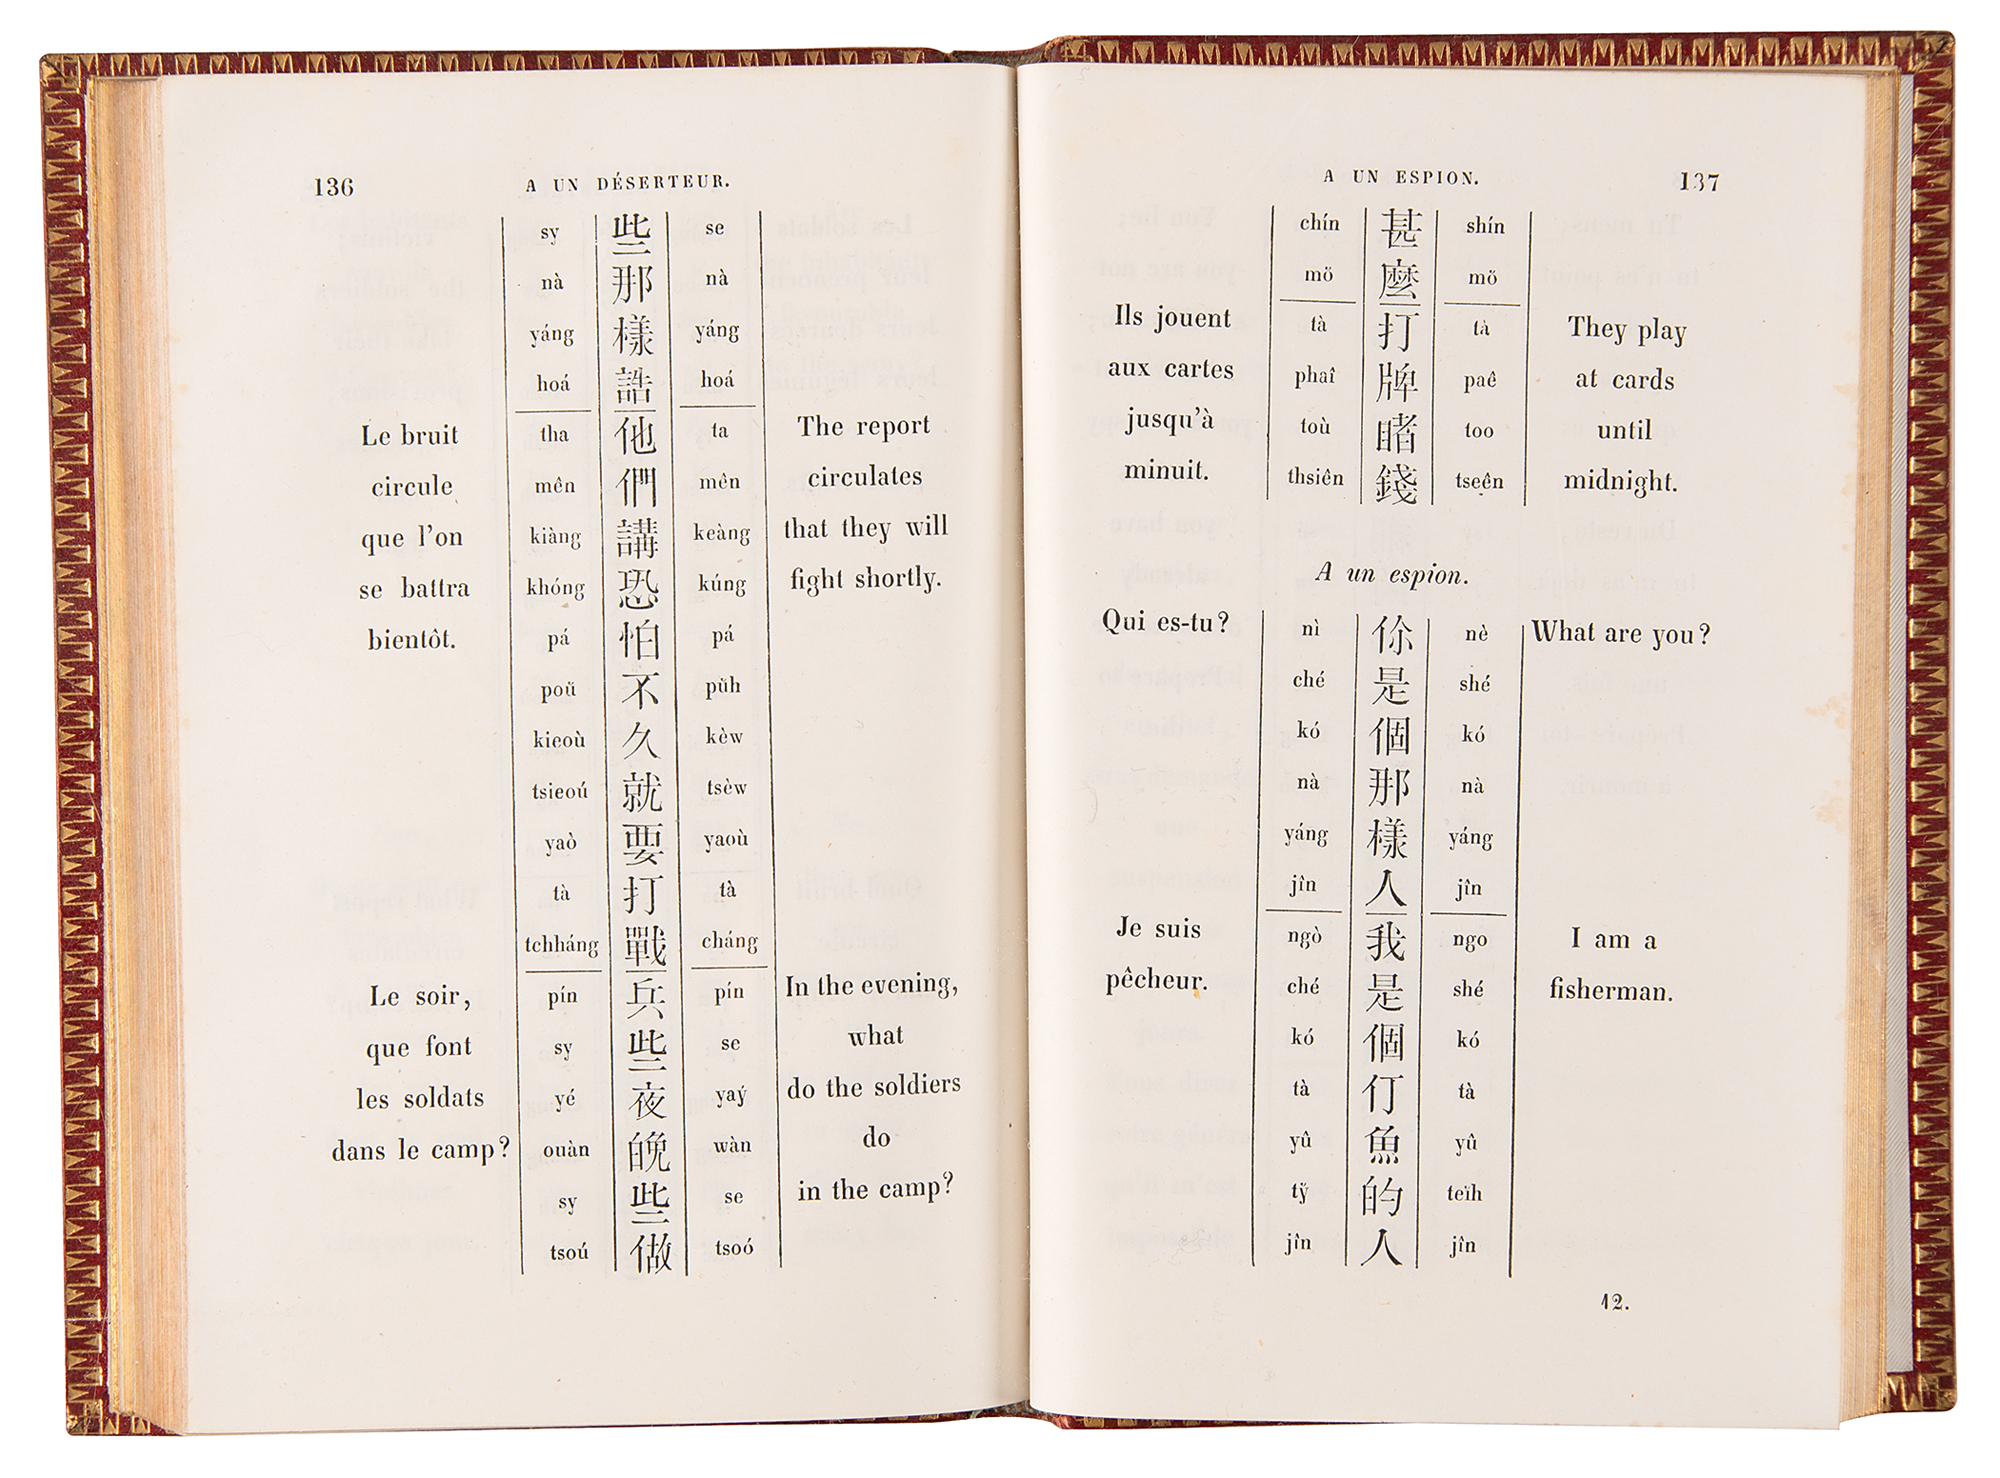 136 A UN DÉSERTEUR.
sy 些 se
nà 那 nà
yáng 樣 yáng
hoá 誥 hoá
Le bruit tha 他 ta The report
circule mên 們 mên circulates
que l'on kiàng 講 keàng that they will
se battra khóng 恐 kúng fight shortly.
bientôt. pá 怕 pá
poŭ 不 pŭh
kieoù 久 kèw
tsieoú 就 tsèw
yaò 要 yaoù
tà 打 tà
tchháng 戰 cháng
Le soir, pín 兵 pín In the evening,
que font sy 些 se what
les soldats yé 夜 yaý do the soldiers
dans le camp? ouàn 晚 wàn do
sy 些 se in the camp?
tsoú 做 tsoó
A UN ESPION. 137
chín 甚 shín
mŏ 麼 mŏ
Ils jouent tà 打 tà They play
aux cartes phaî 牌 paê at cards
jusqu'à toù 睹 too until
minuit. thsiên 錢 tseên midnight.
A un espion.
Qui es-tu? nì 你 nè What are you?
ché 是 shé
kó 個 kó
nà 那 nà
yáng 樣 yáng
jîn 人 jîn
Je suis ngò 我 ngo I am a
pêcheur. ché 是 shé fisherman.
kó 個 kó
tà 仃 tà
yû 魚 yû
tў 的 teĭh
jîn 人 jîn
12.